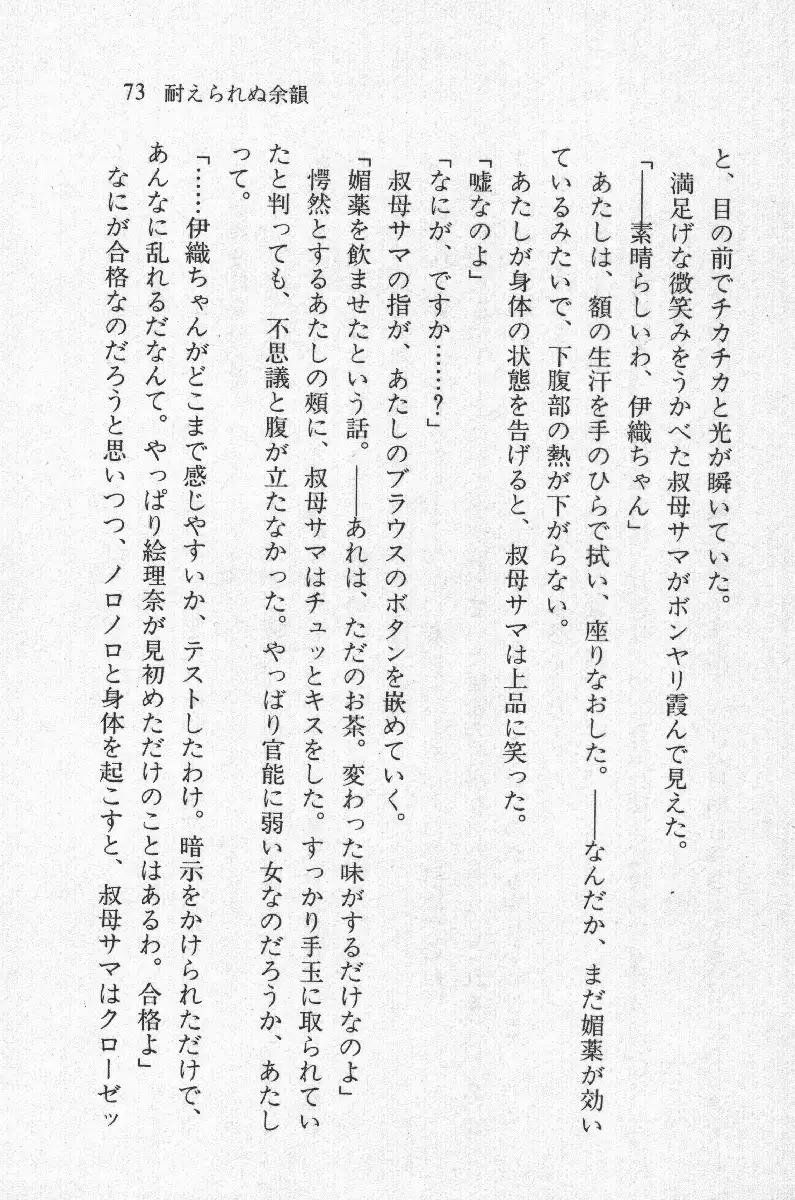 73 耐えられぬ余韻
と、目の前でチカチカと光が瞬いていた。
満足げな微笑みをうかべた叔母サマがボンヤリ霞んで見えた。
「――素晴らしいわ、伊織ちゃん」
あたしは、額の生汗を手のひらで拭い、座りなおした。――なんだか、まだ媚薬が効い
ているみたいで、下腹部の熱が下がらない。
あたしが身体の状態を告げると、叔母サマは上品に笑った。
「嘘なのよ」
「なにが、ですか……？」
叔母サマの指が、あたしのブラウスのボタンを嵌めていく。
「媚薬を飲ませたという話。――あれは、ただのお茶。変わった味がするだけなのよ」
愕然とするあたしの頰に、叔母サマはチュッとキスをした。すっかり手玉に取られてい
たと判っても、不思議と腹が立たなかった。やっぱり官能に弱い女なのだろうか、あたし
って。
「……伊織ちゃんがどこまで感じやすいか、テストしたわけ。暗示をかけられただけで、
あんなに乱れるだなんて。やっぱり絵理奈が見初めただけのことはあるわ。合格よ」
なにが合格なのだろうと思いつつ、ノロノロと身体を起こすと、叔母サマはクローゼッ